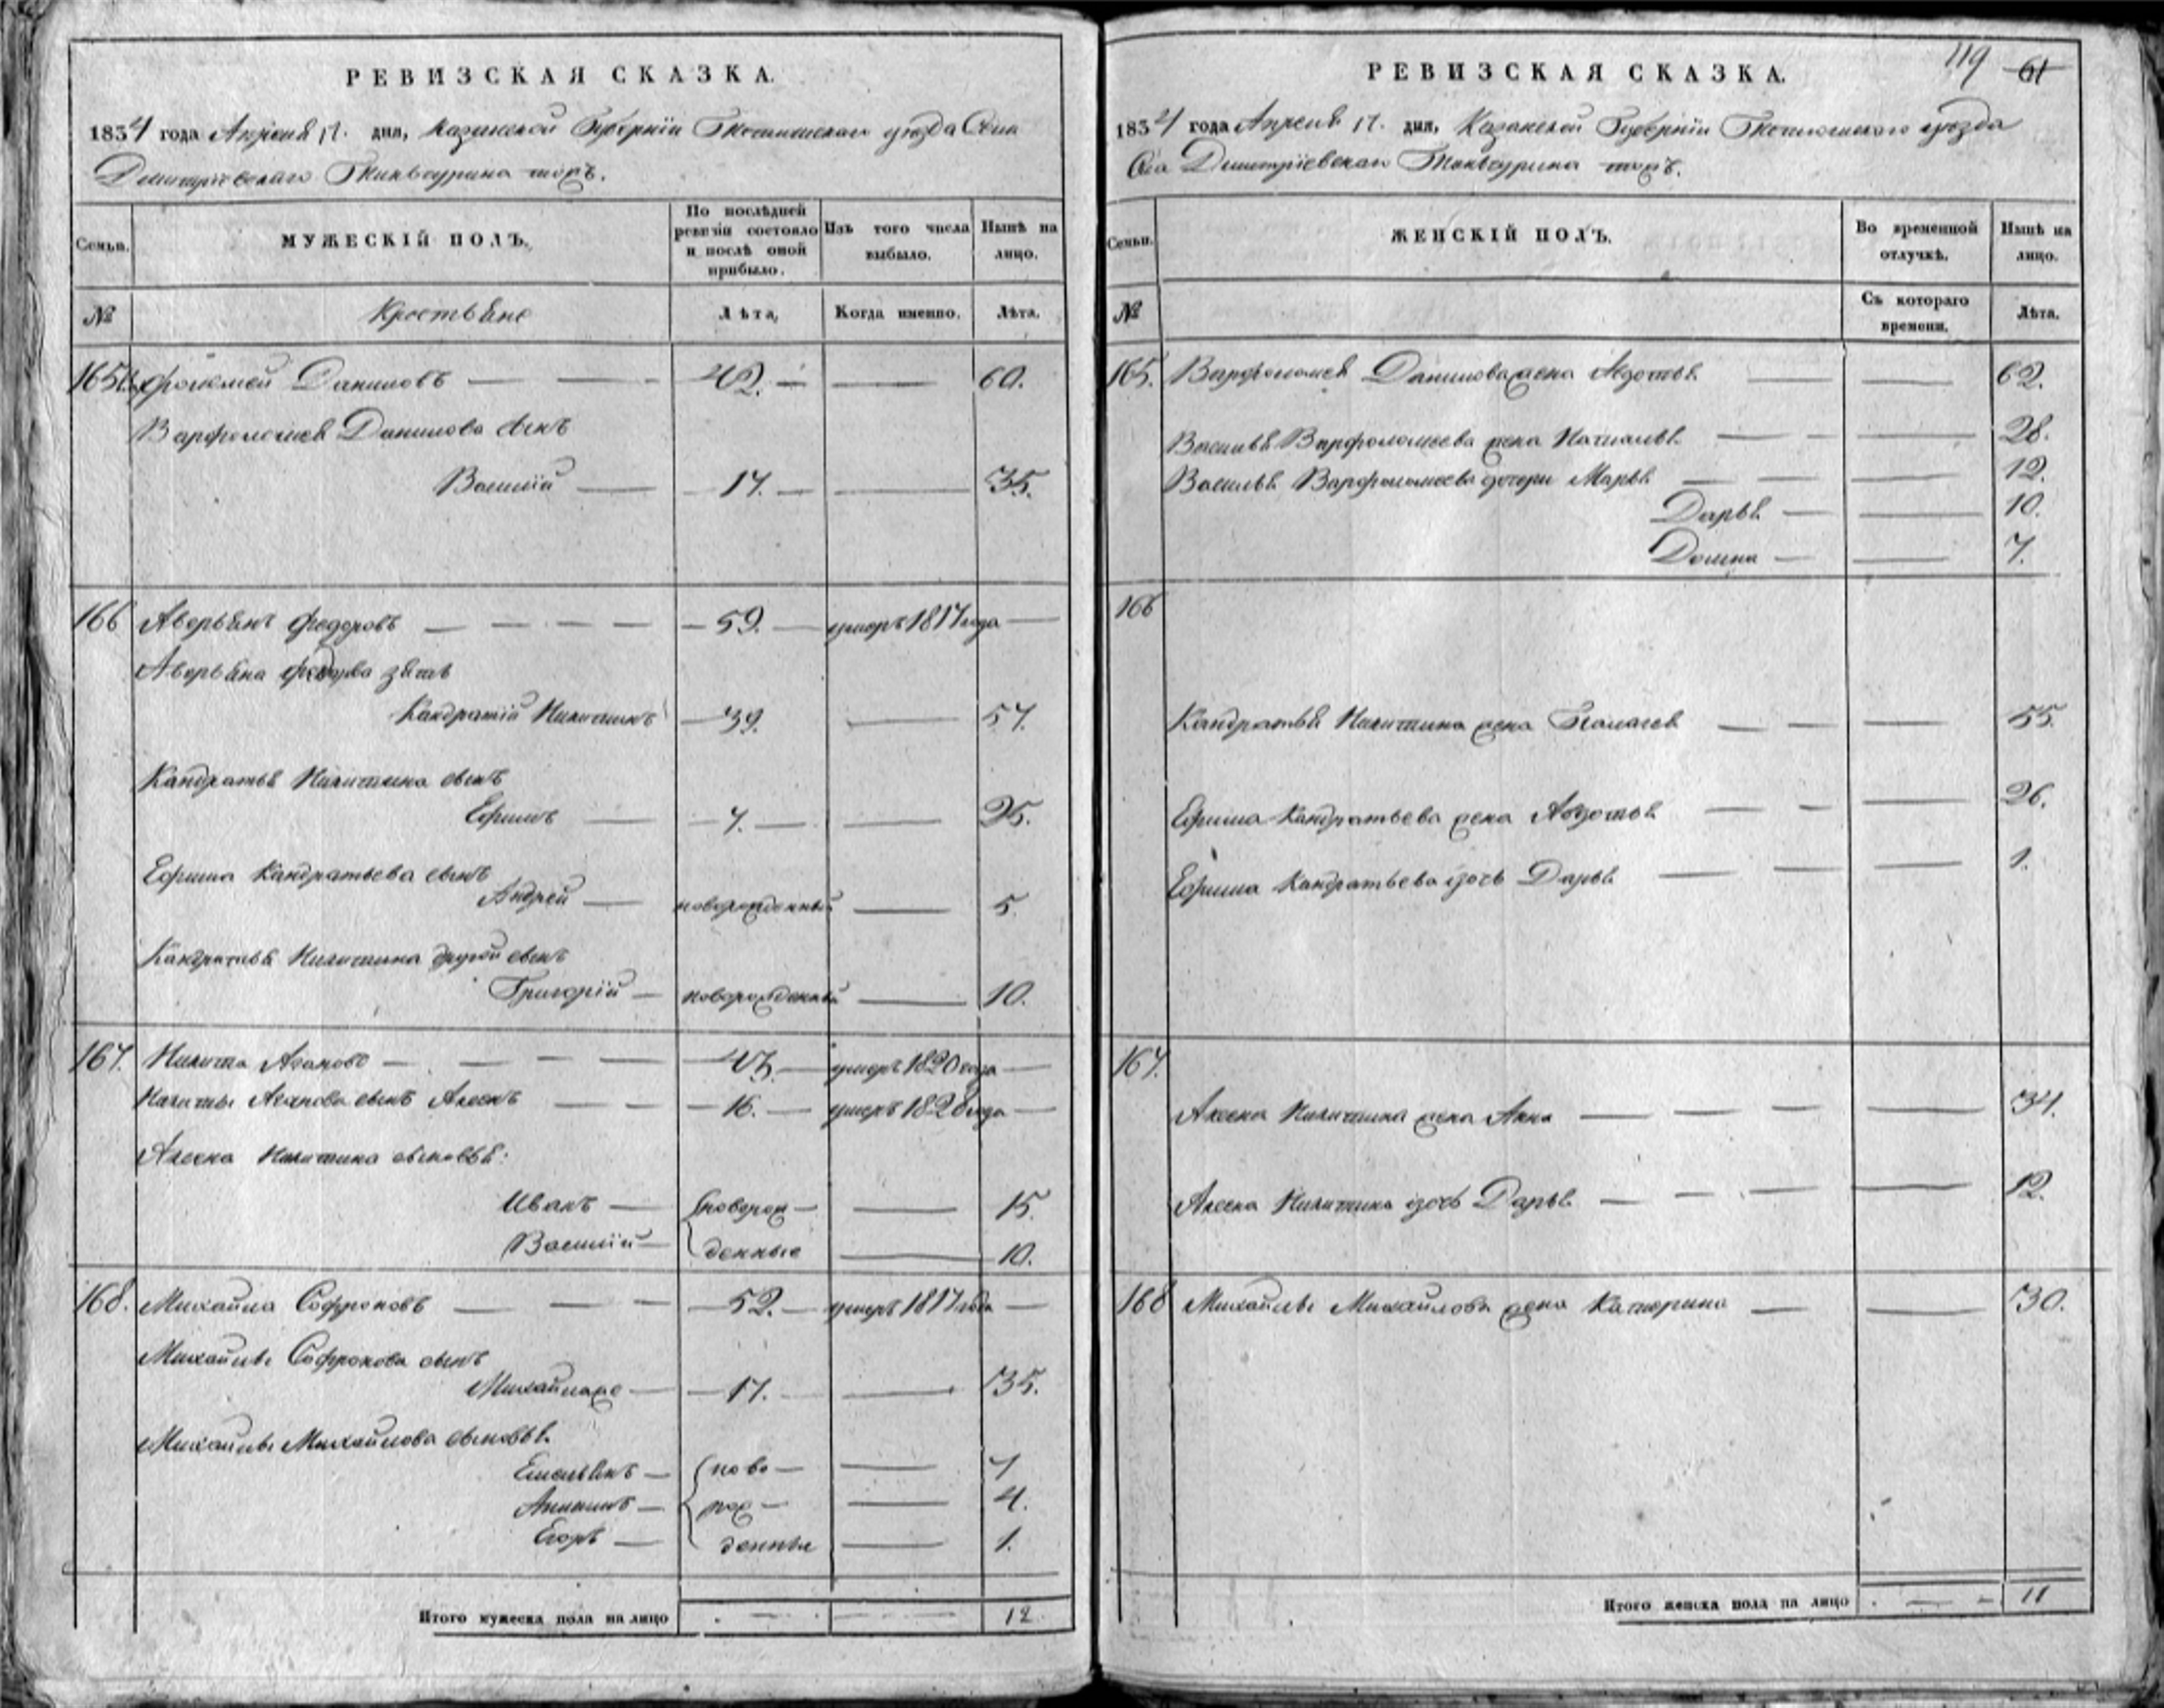 РЕВИЗСКАЯ СКАЗКА.
1834 года Апреля 17. дня, Казанской Губернии уезда Села
Димитриевскаго тожъ.
Семьи. МУЖЕСКІЙ ПОЛЪ. По послѣдней ревизіи состояло и послѣ оной прибыло. Изъ того числа выбыло. Нынѣ на лицо.
№ Крестьяне Лѣта. Когда именно. Лѣта.
165 Даниловъ 42. 60.
Варфоломея Данилова сынъ
Василій 17. 35.
166 Аверьянъ Федоровъ 59. умеръ 1817 года
Аверьяна Федорова зять
Кандратій Никитинъ 39. 57.
Кандратья Никитина сынъ
Ефимъ 7. 25.
Ефима Кандратьева сынъ
Андрей новорожденный 5.
Кандратья Никитина другой сынъ
Григорій новорожденный 10.
167. Никита 43. умеръ 1820 года
Никиты сынъ 16. умеръ 1828 года
Никитина сыновья:
Иванъ новорож- 15.
Василій денные 10.
168. Михайла Софроновъ 52. умеръ 1817 года
Михайлы Софронова сынъ
Михайлаже 17. 35.
Михайлы Михайлова сыновья
Емельянъ ново- 7
рож- 4.
Егоръ денныя 1.
Итого мужеска пола на лицо 12
119 61
РЕВИЗСКАЯ СКАЗКА.
1834 года Апреля 17. дня, Казанской Губернии уезда
Села Димитриевскаго тожъ.
Семьи. ЖЕНСКІЙ ПОЛЪ. Во временной отлучкѣ. Нынѣ на лицо.
№ Съ котораго времени. Лѣта.
165. Варфоломея Данилова жена Авдотья 62.
Василья Варфоломеева жена Наталья 28.
Василья Варфоломеева дочери Марья 12.
Дарья 10.
Домна 7.
166
Кандратья Никитина жена Пелагея 55.
Ефима Кандратьева жена Авдотья 26.
Ефима Кандратьева дочь Дарья 1.
167.
Никитина жена Анна 34.
Никитина дочь Дарья 12.
168 Михайлы Михайлова жена Катерина 30.
Итого женска пола на лицо 11